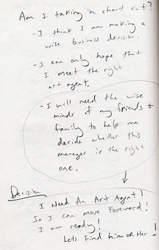 Am I taking a short cut?
- I think I am making a
wise business decision.
- I can only hope that
I meet the right
art agent.
- I will need the wise
minds of my friends &
family to help me
decide whether this
manager is the right
one.
Decision
I Need An Art Agent!
So I can move Foreword!
I am ready!
Lets Find him or Her